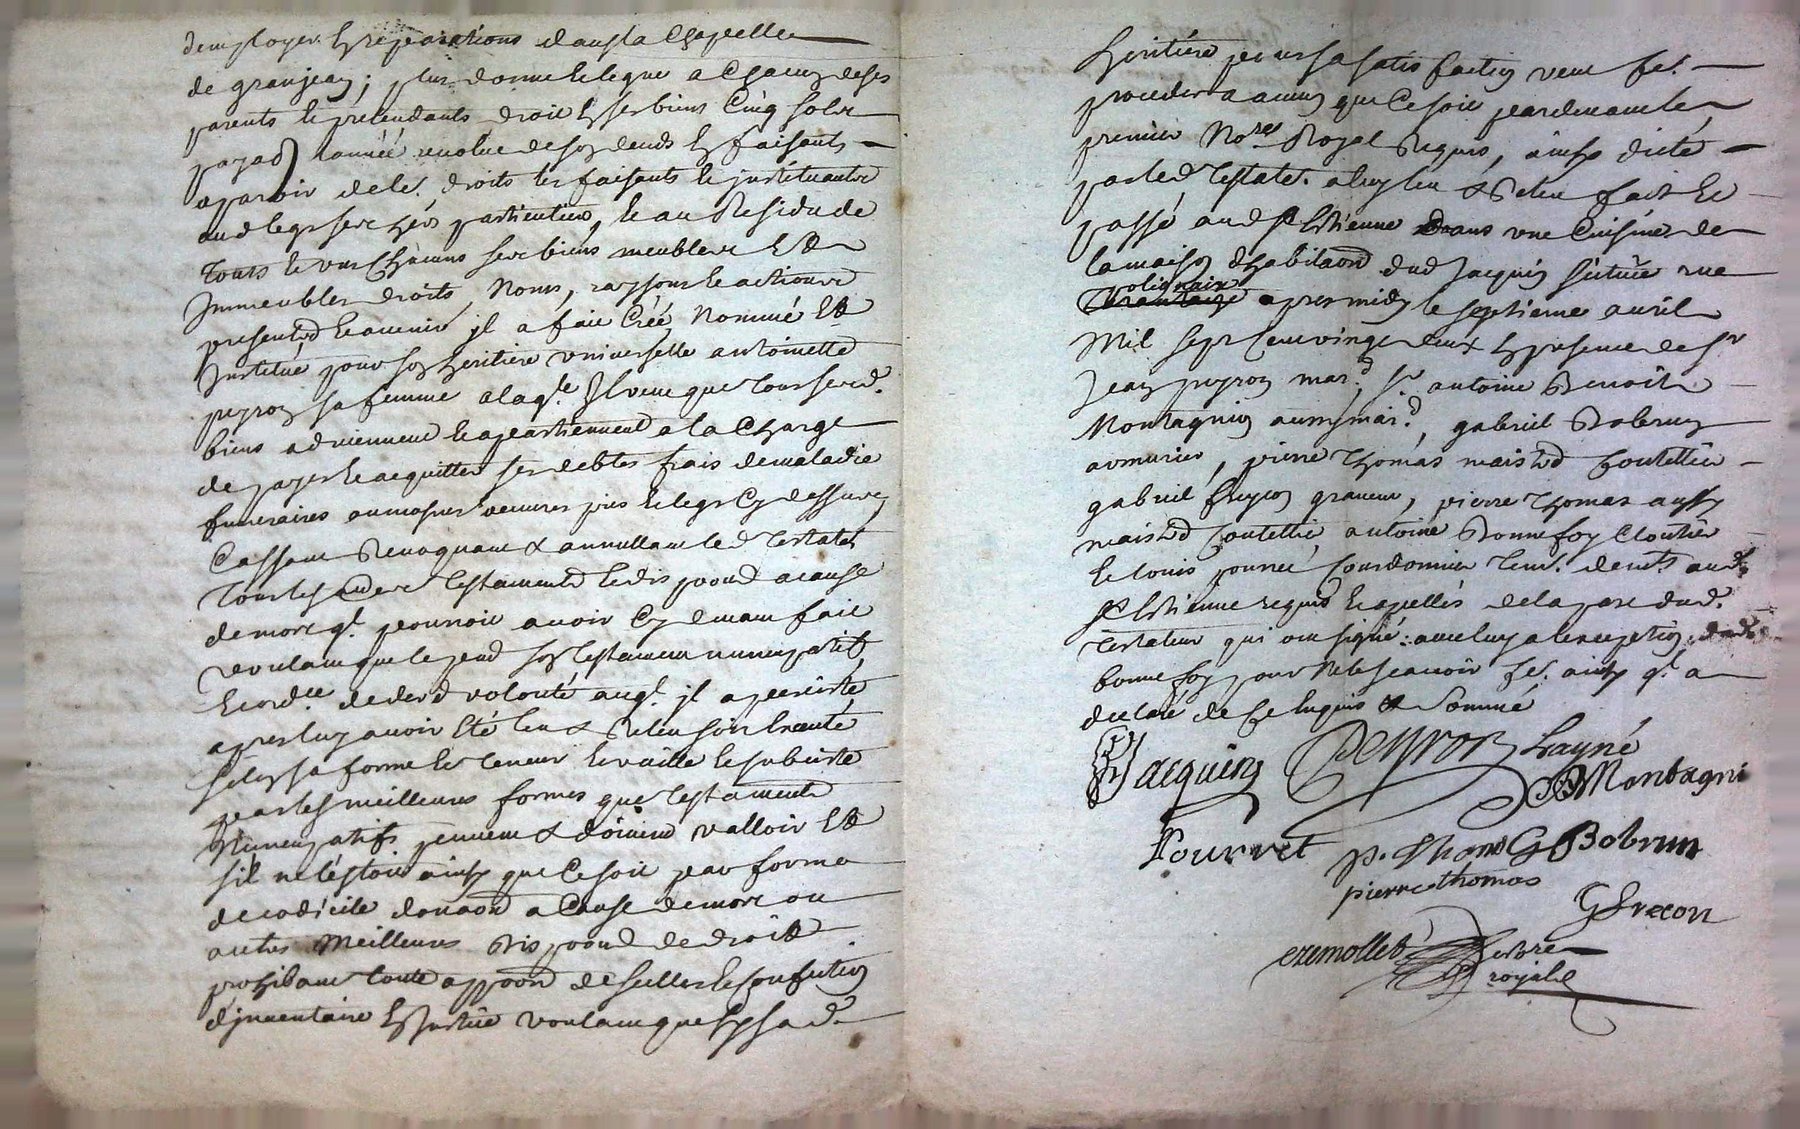 d'employer En reparations dans la Chapelle
de granjean; plus donne et legue a Chacun de ses
parents et pretendants droit En ses biens Cinq sols
payab l'année revolue de son deceds En faisants
aparoir de le. droits les faisants et instituants
aud legs ses hers particuliers, et au Residu de
Tous et uns Chacuns ses biens meubles Et
Immeubles droits, Noms, raysons et actions
present et avenir il a fait Créé, Nommé Et
Institué pour son heritiere universelle antoinette
peyron sa femme a laqle Il veut que tous sesd.
biens adviennent et apartiennent a la Charge
de payer et acquitter ses debtes frais de maladie
funeraires aumosnes oeuvres pies et legs Cy dessus,
Cassant Revoquant & annullant led Testatr
Tous les autres testaments et dispoons a cause
de mort ql. pourroit avoir Cy devant fait
voulant que le pnt son testament nuncupatif
Et ordce. de derre volonté auql. il a persisté
apres luy avoir Eté leu & Releu soit Executé
selon sa forme Et teneur Et vaille et subciste
par les meilleures formes que testaments
Nuncupatifs peuvent & doivent valloir Et
s'il ne l'estoit ainsy que Ce soit par forme
de codicile donaon a Cause de mort ou
autres Meilleures Dispoons de droit
prohibant toute appoon de scellés et Confection
d'jnventaire En Justice voulant que Sy sad.
heritiere pour sa satisfaction veut fe.
proceder a aucun que Ce soit pardevant le
premier Nore Royal Requis, ainsy dicté
par led Testatr. a luy leu & Releu fait Et
passé aud St Estienne Dans une Cuisine de
la maison d'habitaon dud Jacquin scituée rue
polignaix
apres midy le septieme avril
Mil sept Cent vingt deux En presence de sr
Jean peyron mard. sr antoine Benoit
Montagnier aussy mard., gabriel Boberun
armurier, pierre Thomas maistre Coutellier
gabriel freycon graveur, pierre Thomas aussy
maistre Coutellier, antoine Bonnefoy Cloutier
Et louis pourret Courdonnier tem. demts. aud.
St Estienne requis Et apellés de la part dud.
Testateur qui ont signé: avec luy a l'exception dud
bonnefoy pour ne le scavoir fe. ainsy ql. a
declaré de ce Enquis & Sommé
Jacquin Peyron Layné
Montagni
Pourret p. thomas G Bobrun
pierre thomas
G Frecon
ezemollet Notre
royal